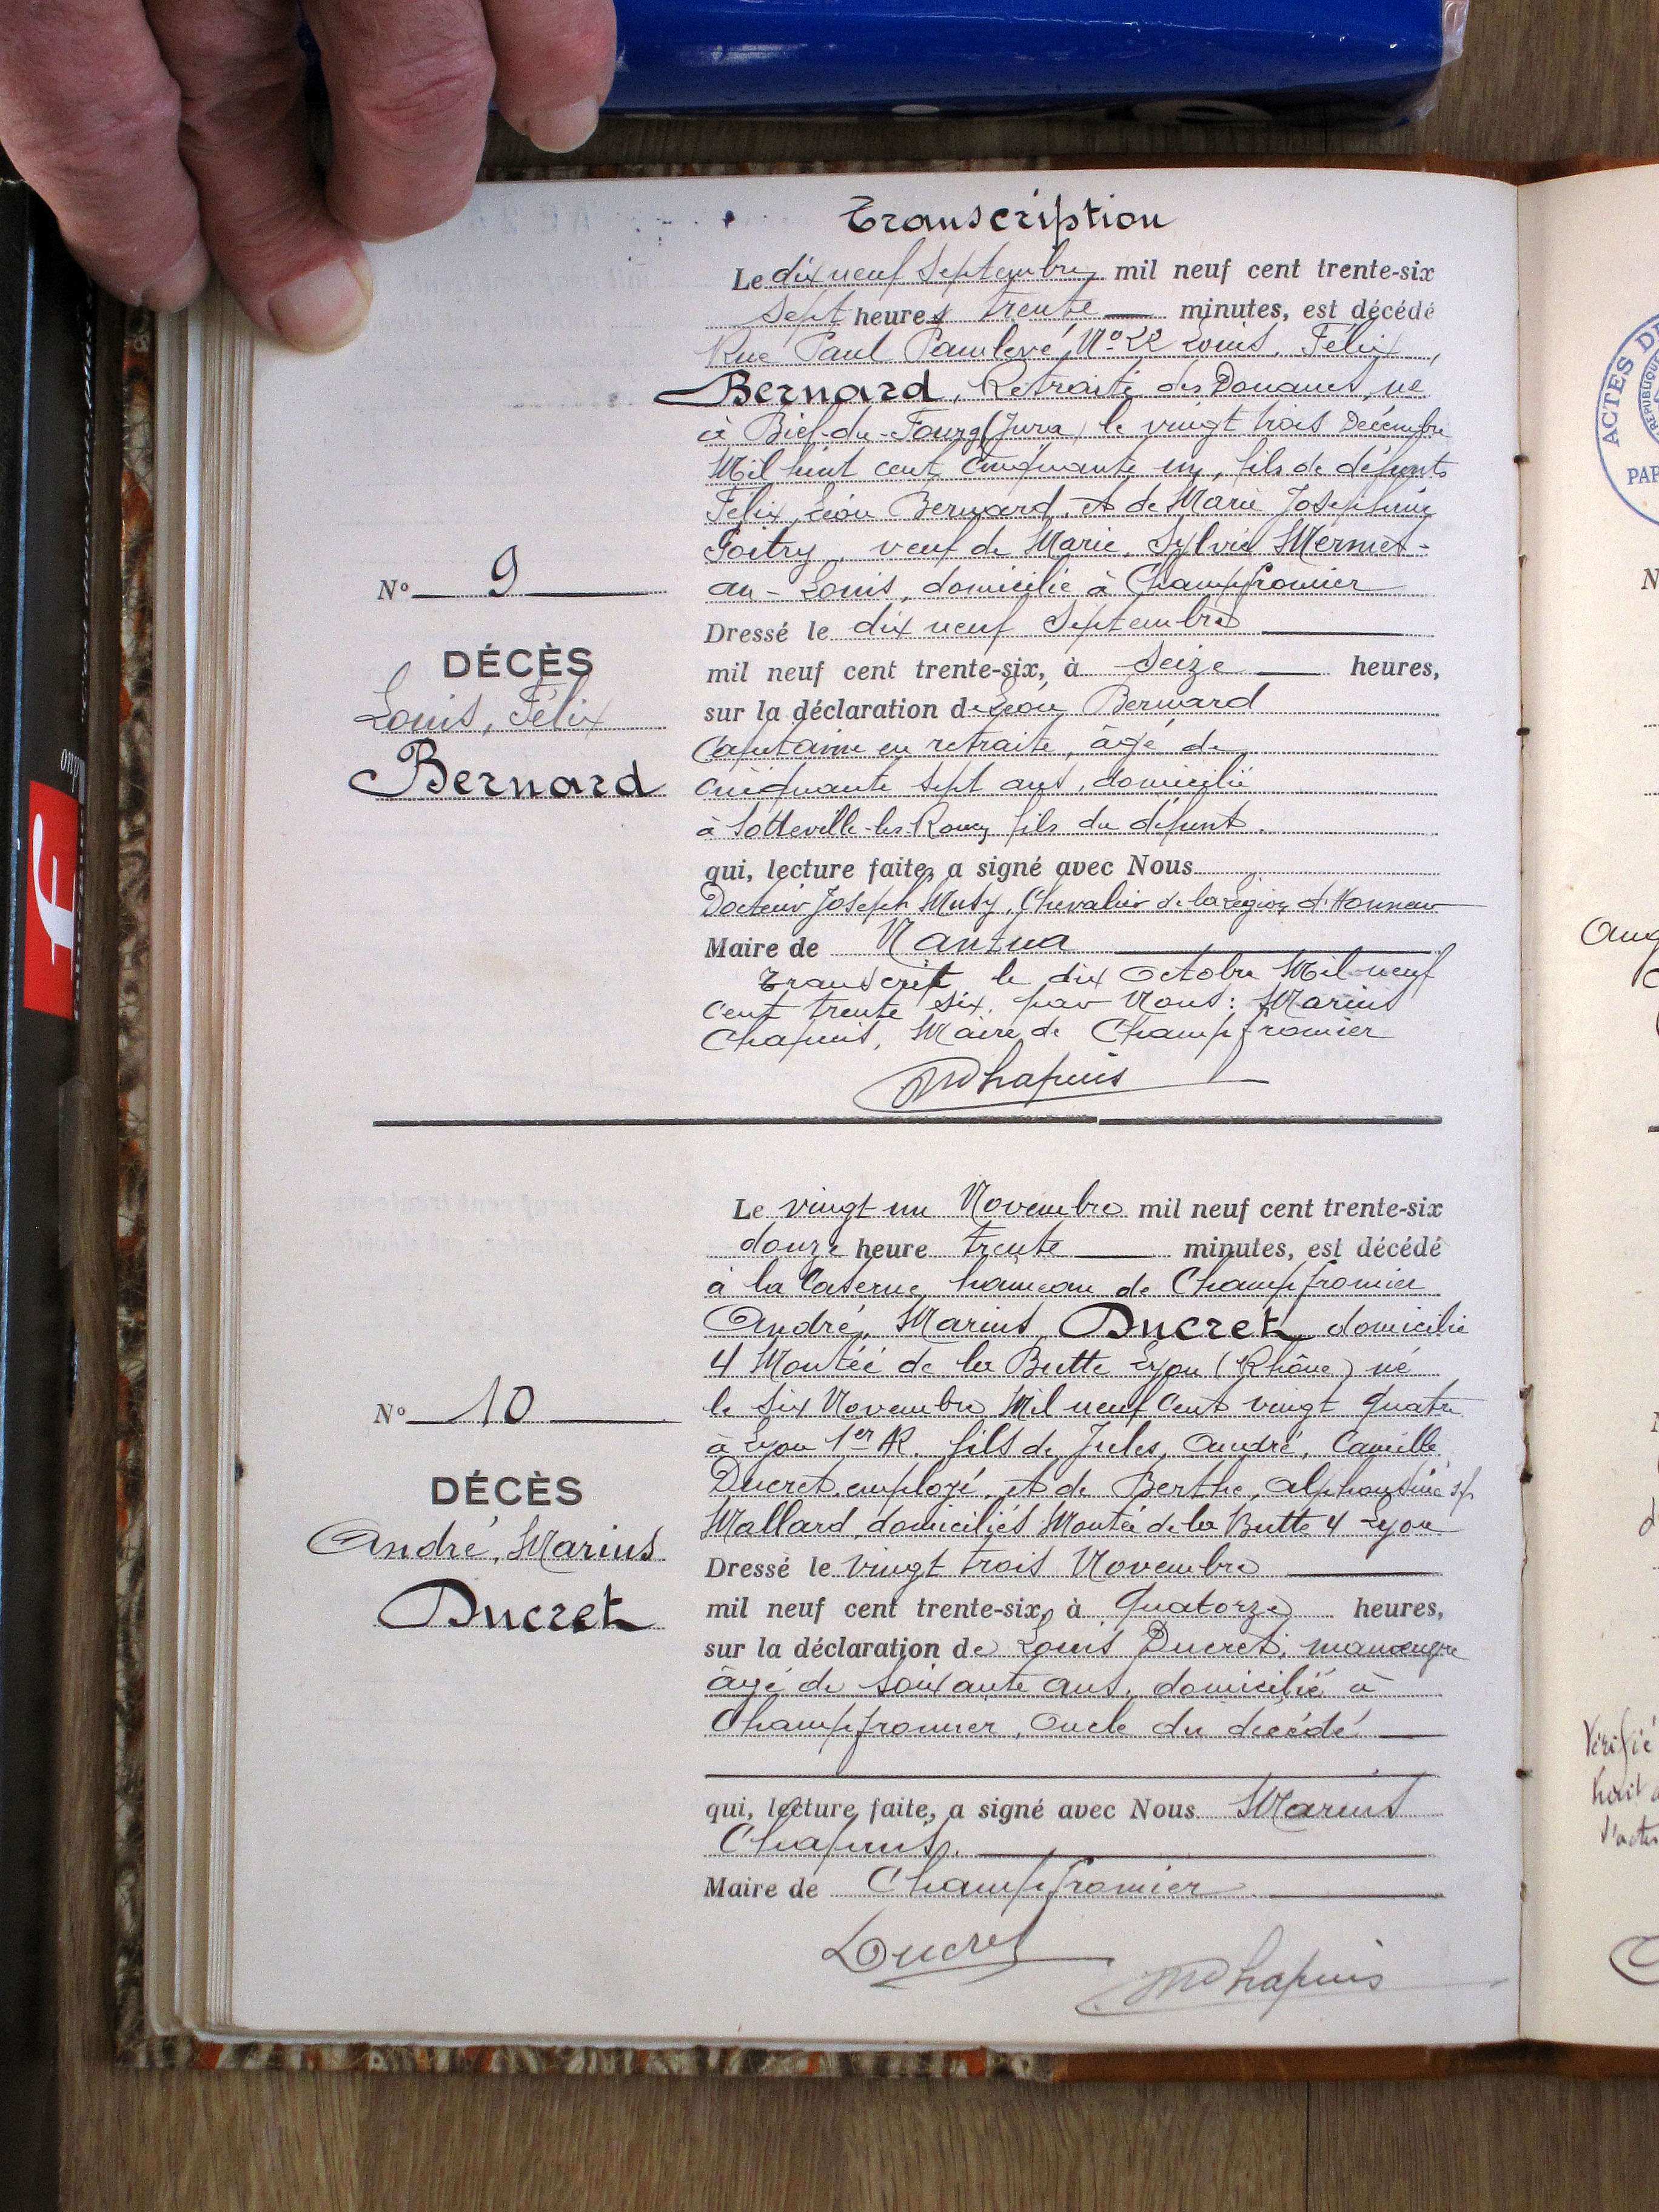 Transcription
Le dix neuf Septembre mil neuf cent trente-six
Sept heures trente minutes, est décédé
Rue Paul Painlevé, No 22 Louis, Félix,
Bernard, Retraité des Douanes, né
à Bief-du-Fourg (Jura) le vingt trois Décembre
Mil huit cent cinquante un, fils de défunts
Félix, Léon Bernard, et de Marie Joséphine
veuf de Marie, Sylvie Mermet-
au-Louis, domicilié à Champfromier
Dressé le dix neuf Septembre
mil neuf cent trente-six, à Seize heures,
sur la déclaration de Léon Bernard
Capitaine en retraite, âgé de
cinquante sept ans, domicilié
à Sotteville-les-Rouen fils du défunt.
qui, lecture faite, a signé avec Nous
Docteur Joseph Musy, Chevalier de la Légion d'Honneur
Maire de Nantua
Transcrit le dix Octobre Mil neuf
cent trente six, par Nous: Marius
Chapuis, Maire de Champfromier
MChapuis
No 9
DÉCÈS
Louis, Félix
Bernard
Le vingt un Novembre mil neuf cent trente-six
douze heure trente minutes, est décédé
à la Caserne hameau de Champfromier
André, Marius Ducret domicilié
4 Montée de la Butte Lyon (Rhône) né
le six Novembre Mil neuf Cent vingt quatre
à Lyon 1er Ar. fils de Jules, André, Camille
Ducret employé, et de Berthe, Alphonsine s.p.
Mallard, domiciliés Montée de la Butte 4 Lyon
Dressé le vingt trois Novembre
mil neuf cent trente-six, à Quatorze heures,
sur la déclaration de Louis Ducret, manoeuvre
âgé de Soixante ans, domicilié à
Champfromier, Oncle du décédé
qui, lecture faite, a signé avec Nous Marius
Chapuis.
Maire de Champfromier
Ducret
MChapuis
No 10
DÉCÈS
André, Marius
Ducret
ACTES DE
PAP
Vérifié